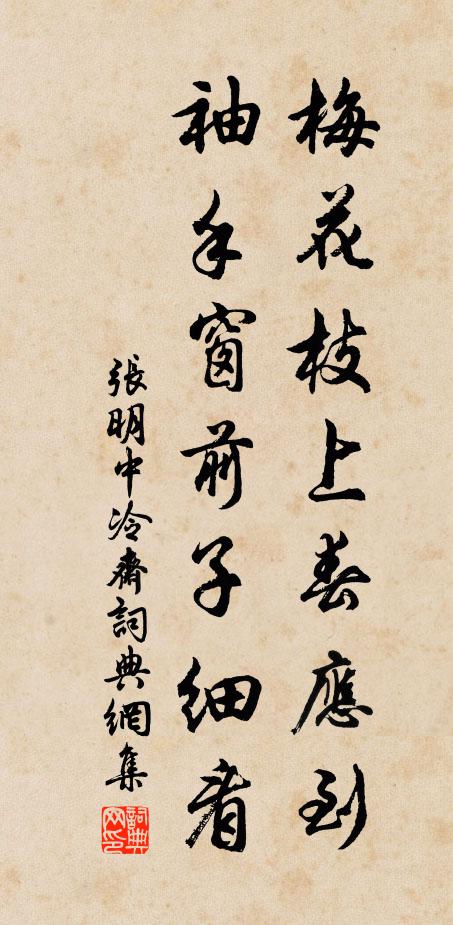 梅花枝上春應到
袖手窗前子細看
張明中冷齋詞典網集
詞典網印